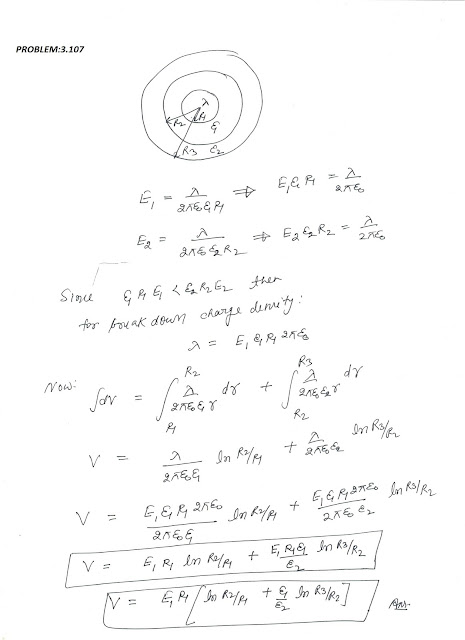 PROBLEM:3.107
λ
R₂ R₁ ε₁
R₃ ε₂
E₁ = λ/2πε₀ε₁R₁ ⇒ E₁ε₁R₁ = λ/2πε₀
E₂ = λ/2πε₀ε₂R₂ ⇒ E₂ε₂R₂ = λ/2πε₀
Since ε₁R₁E₁ < ε₂R₂E₂ then
for break down charge density:
λ = E₁ε₁R₁2πε₀
Now: ∫dv = ∫_{R₁}^{R₂} λ/2πε₀ε₁r dr + ∫_{R₂}^{R₃} λ/2πε₀ε₂r dr
V = λ/2πε₀ε₁ ln R₂/R₁ + λ/2πε₀ε₂ ln R₃/R₂
V = E₁ε₁R₁2πε₀/2πε₀ε₁ ln R₂/R₁ + E₁ε₁R₁2πε₀/2πε₀ε₂ ln R₃/R₂
V = E₁R₁ ln R₂/R₁ + E₁R₁ε₁/ε₂ ln R₃/R₂
V = E₁R₁[ln R₂/R₁ + ε₁/ε₂ ln R₃/R₂] Ans.